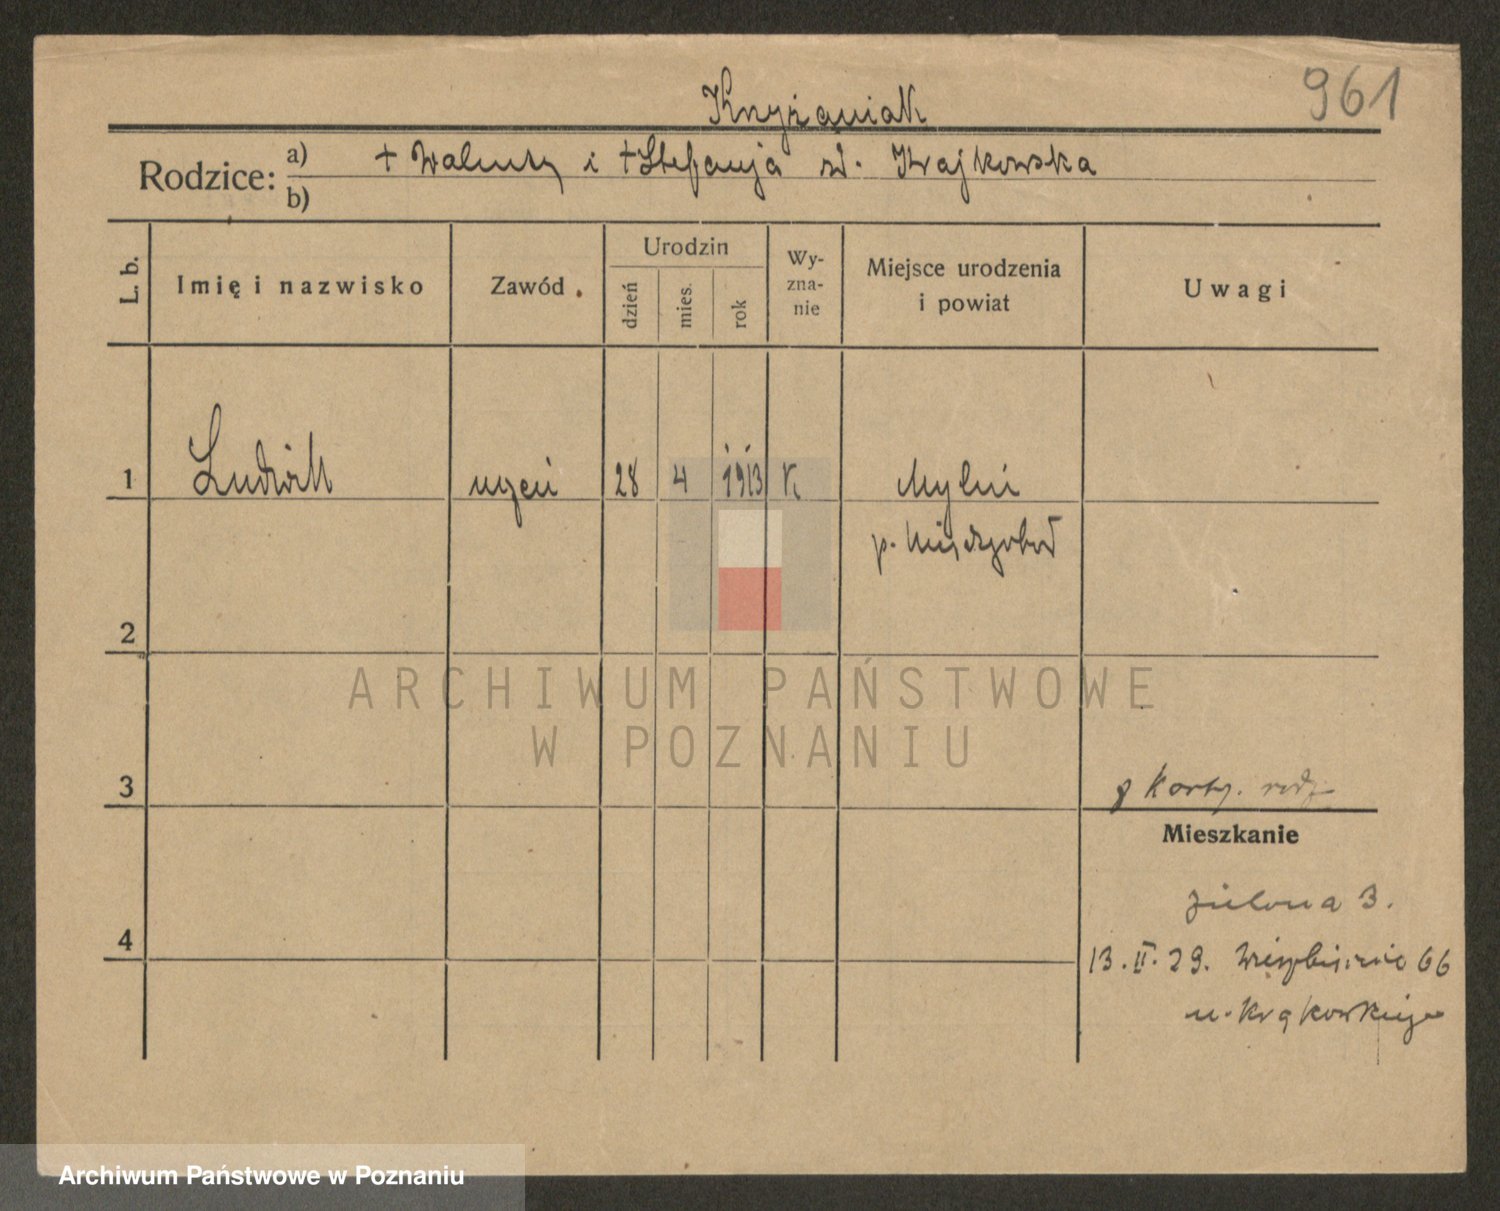 961
Krzyżaniak
Rodzice: a) + Walenty i + Stefanja zd. Krajkowska
b)
L. b.
Imię i nazwisko
Zawód
Urodzin
dzień
mies.
rok
Wy-
zna-
nie
Miejsce urodzenia
i powiat
Uwagi
1 Ludwik uczeń 28 4 1913 K.
p. Międzychód
2
ARCHIWUM PAŃSTWOWE
W POZNANIU
3
z karty rodz.
Mieszkanie
Zielona 3.
4
13.II.29. 66
u. Krąkowskiego
Archiwum Państwowe w Poznaniu